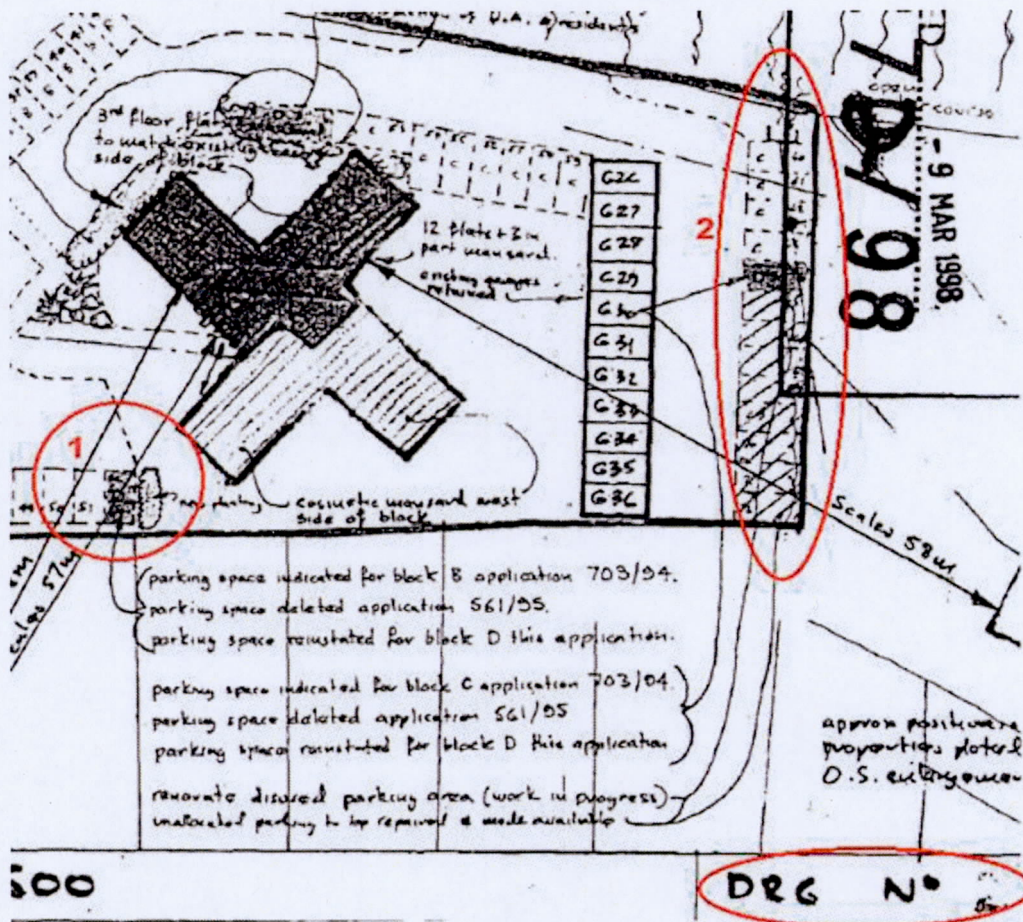 of D.A. residents
3rd floor flat
to match existing
side of block
12 flats + 3 in
part mansard.
existing garages
retained
G26
G27
G28
G29
G30
G31
G32
G33
G34
G35
G36
2
7D/98
- 9 MAR 1998
open
course
1
49 50 51
new planting
cosmetic mansard west
side of block
57m
Scales 58m
parking space indicated for block B application 703/94.
parking space deleted application 561/95.
parking space reinstated for block D this application.
parking space indicated for block C application 703/94.
parking space deleted application 561/95
parking space reinstated for block D this application
renovate disused parking area (work in progress)
unallocated parking to be repaired & made available
approx positions
properties plotted
O.S. enlargement
500
DRG Nº